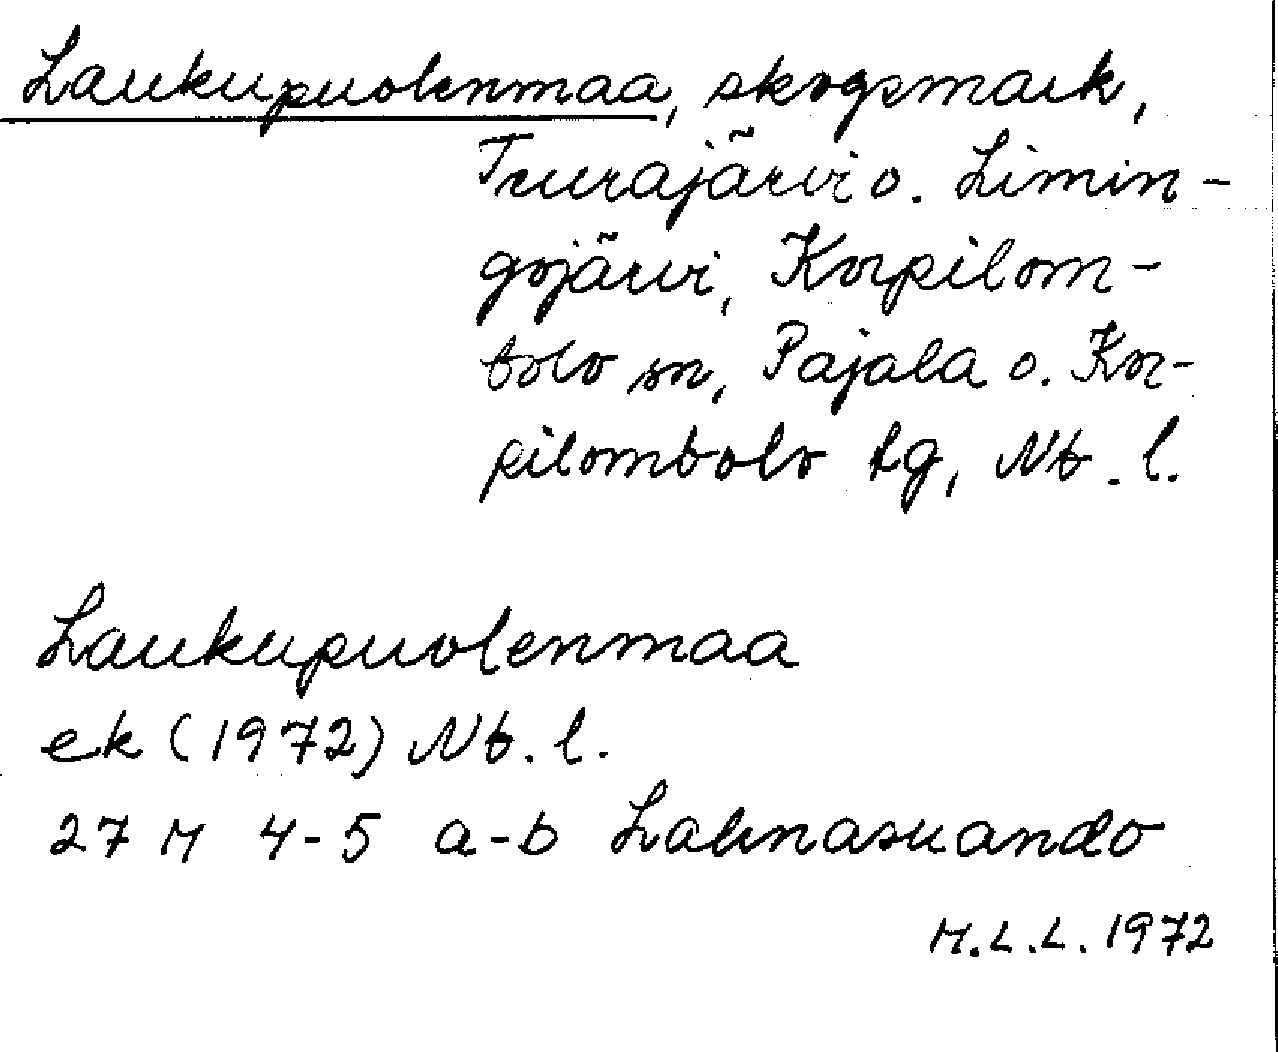 Laukupuolenmaa, skogsmark,
Teurajärvi o. Limin-
gojärvi, Korpilom-
bolo sn, Pajala o. Kor-
pilombolo tg, Nb. l.
Laukupuolenmaa
ek (1972) Nb. l.
27 M 4-5 a-b Lahnasuando
M.L.L. 1972